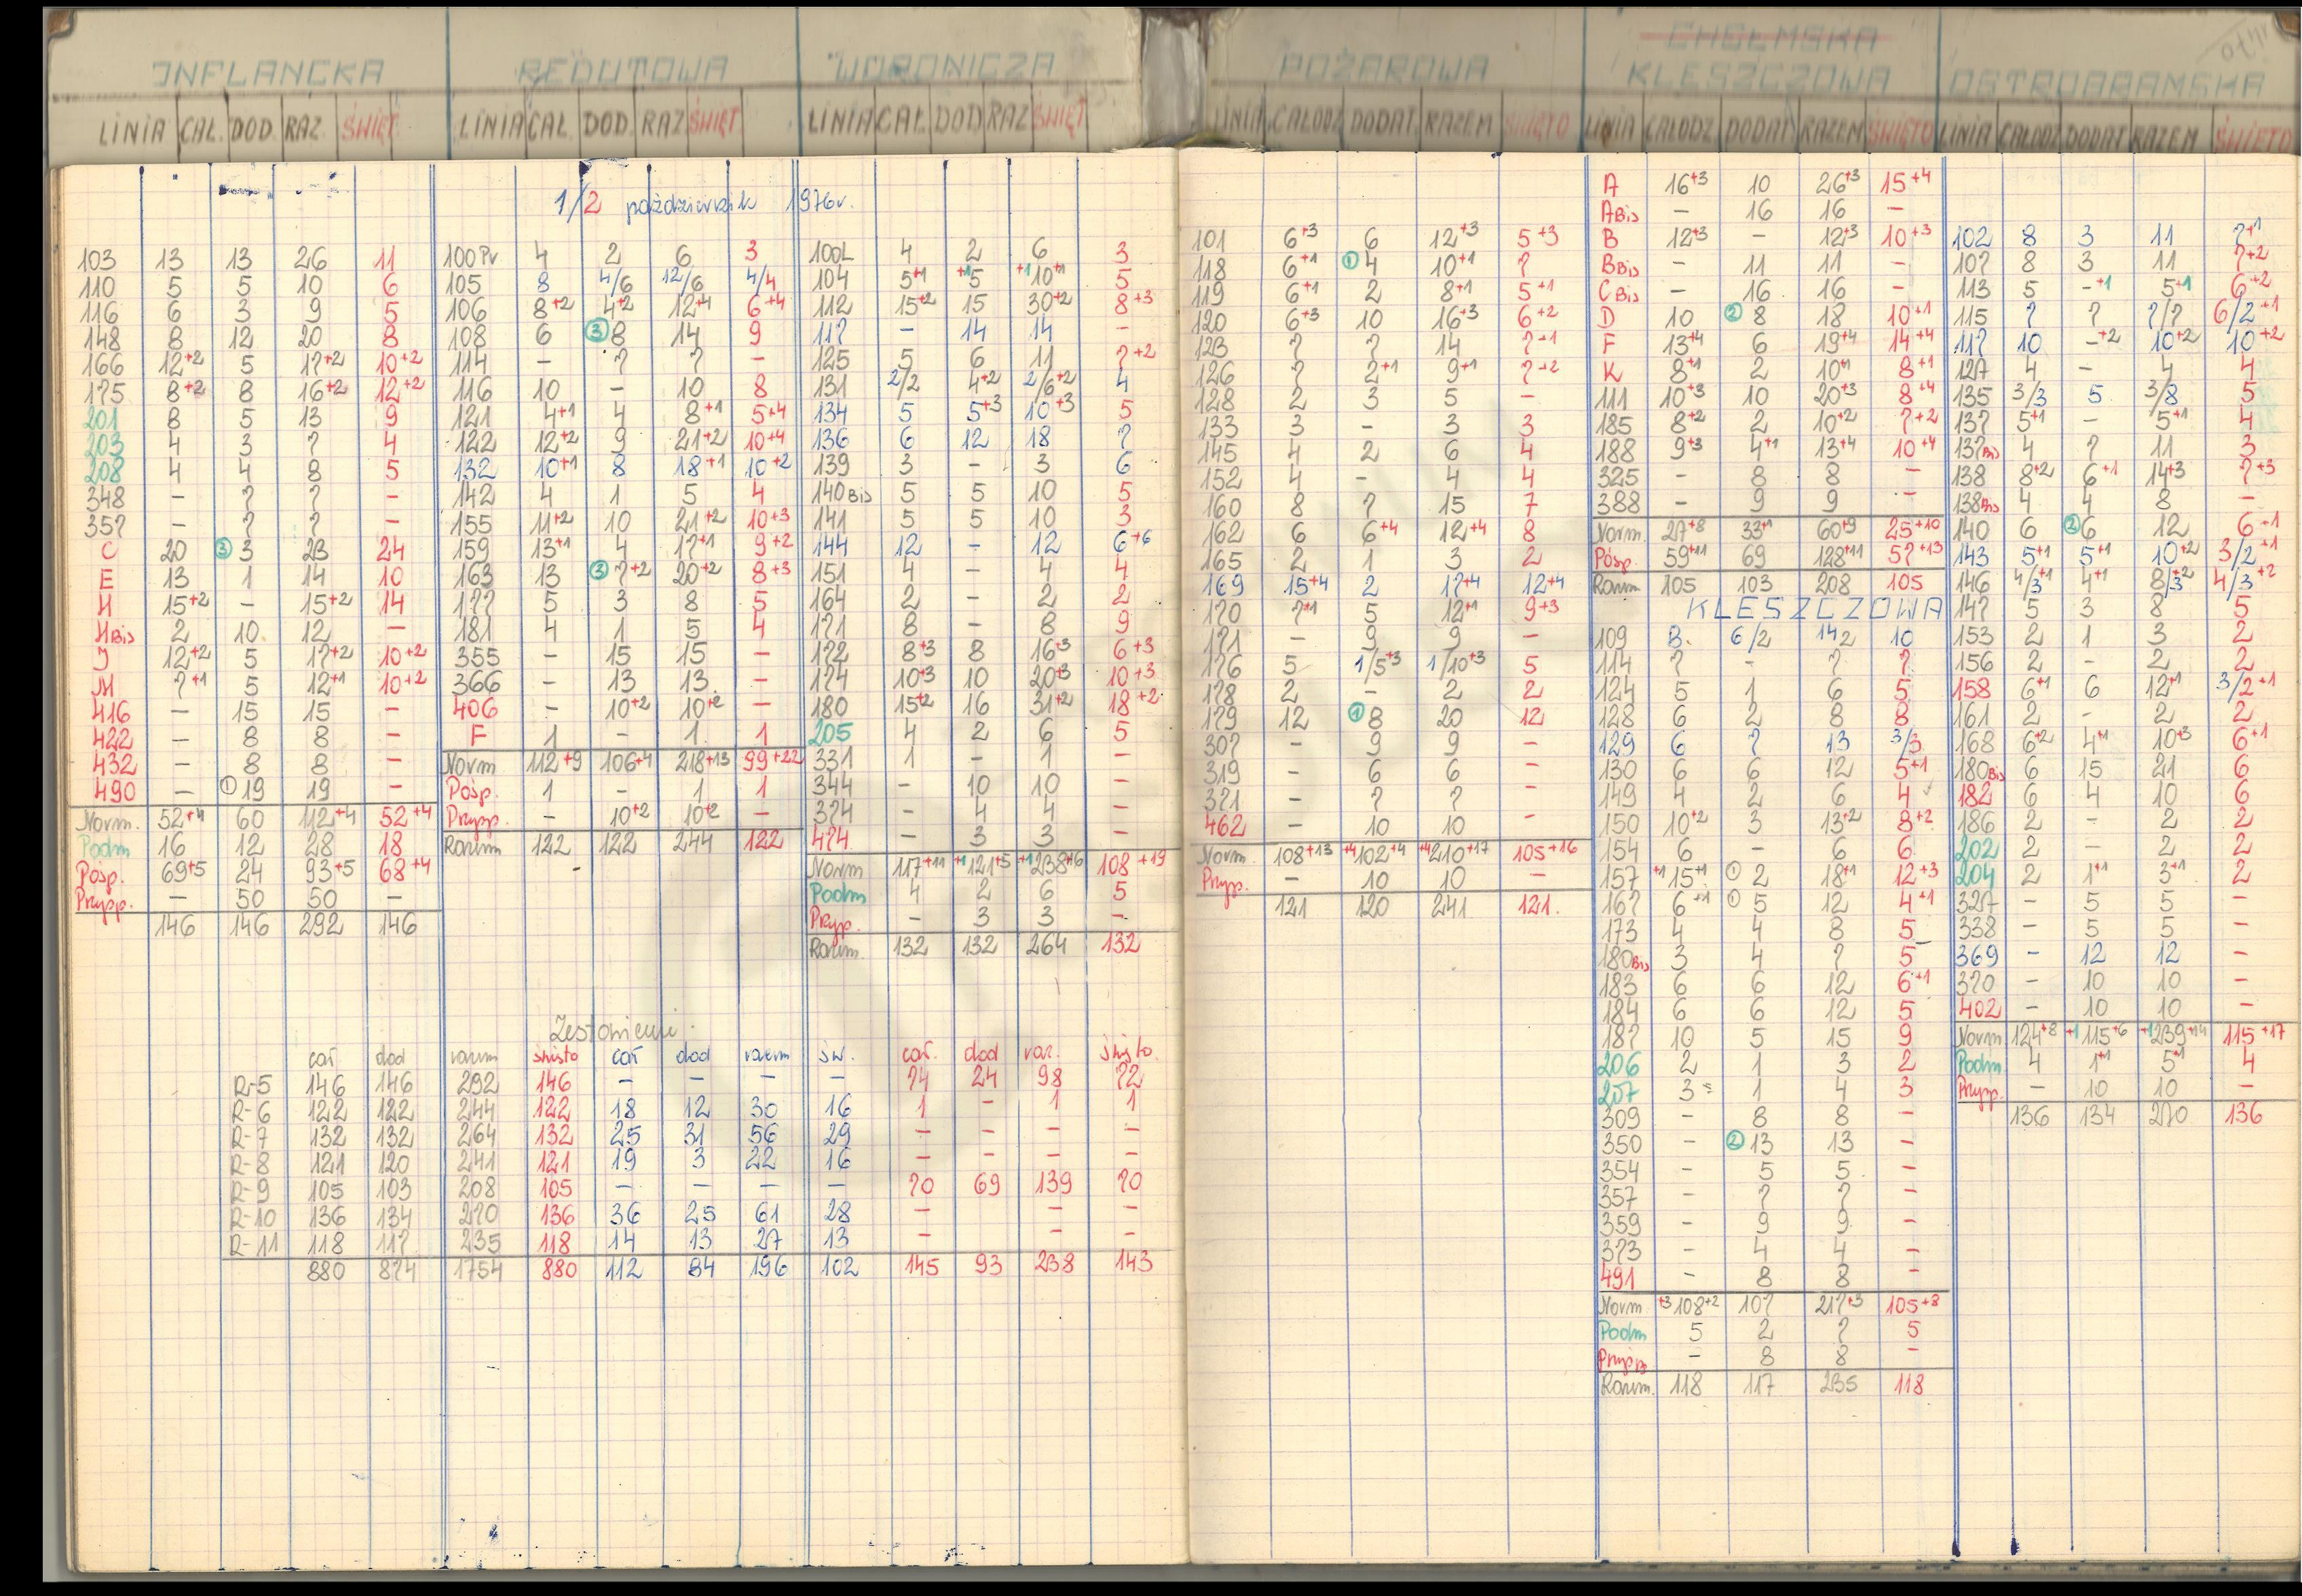 INFLANCKA
LINIA CAŁ. DOD. RAZ. ŚWIĘT
REDUTOWA
LINIA CAŁ. DOD. RAZ ŚWIĘT
WORONICZA
LINIA CAŁ. DOD RAZ ŚWIĘT
POŻAROWA
LINIA CAŁODZ DODAT RAZEM ŚWIĘTO
CHEŁMSKA
KLESZCZOWA
LINIA CAŁODZ DODAT RAZEM ŚWIĘTO
OSTROBRAMSKA
LINIA CAŁODZ DODAT RAZEM ŚWIĘTO
1/2 październik 1976r.
103 13 13 26 11
110 5 5 10 6
116 6 3 9 5
148 8 12 20 8
166 12+2 5 17+2 10+2
175 8+2 8 16+2 12+2
201 8 5 13 9
203 4 3 7 4
208 4 4 8 5
348 - 7 7 -
357 - 7 7 -
C 20 ③ 3 23 24
E 13 1 14 10
H 15+2 - 15+2 14
H Bis 2 10 12 -
J 12+2 5 17+2 10+2
M 7+1 5 12+1 10+2
416 - 15 15 -
422 - 8 8 -
432 - 8 8 -
490 - ① 19 19 -
Norm. 52+4 60 112+4 52+4
Podm 16 12 28 18
Posp. 69+5 24 93+5 68+4
Przysp. - 50 50 -
146 146 292 146
100 Pr 4 2 6 3
105 8 4/6 12/6 4/4
106 8+2 4+2 12+4 6+4
108 6 ③ 8 14 9
114 - 7 7 -
116 10 - 10 8
121 4+1 4 8+1 5+4
122 12+2 9 21+2 10+4
132 10+1 8 18+1 10+2
142 4 1 5 4
155 11+2 10 21+2 10+3
159 13+1 4 17+1 9+2
163 13 ③ 7+2 20+2 8+3
177 5 3 8 5
181 4 1 5 4
355 - 15 15 -
366 - 13 13 -
406 - 10+2 10+2 -
F 1 - 1 1
Norm 112+9 106+4 218+13 99+22
Posp. 1 - 1 1
Przysp. - 10+2 10+2 -
Razem 122 122 244 122
100L 4 2 6 3
104 5+1 +1 5 +1 10+1 5
112 15+2 15 30+2 8+3
117 - 14 14 -
125 5 6 11 7+2
131 2/2 4+2 2/6+2 4
134 5 5+3 10+3 5
136 6 12 18 7
139 3 - 3 6
140 Bis 5 5 10 5
141 5 5 10 3
144 12 - 12 6+6
151 4 - 4 4
164 2 - 2 2
171 8 - 8 9
172 8+3 8 16+3 6+3
174 10+3 10 20+3 10+3
180 15+2 16 31+2 18+2
205 4 2 6 5
331 1 - 1 -
344 - 10 10 -
374 - 4 4 -
474 - 3 3 -
Norm 117+11 +1 121+5 +1 238+16 108+19
Podm 4 2 6 5
Przysp. - 3 3 -
Razem. 132 132 264 132
Zestawienie.
cał dod razem święto cał dod razem św. cał. dod raz. święto.
R-5 146 146 292 146 - - - - 74 24 98 72
R-6 122 122 244 122 18 12 30 16 1 - 1 1
R-7 132 132 264 132 25 31 56 29 - - - -
R-8 121 120 241 121 19 3 22 16 - - - -
R-9 105 103 208 105 - - - - 70 69 139 70
R-10 136 134 270 136 36 25 61 28 - - - -
R-11 118 117 235 118 14 13 27 13 - - - -
880 874 1754 880 112 84 196 102 145 93 238 143
101 6+3 6 12+3 5+3
118 6+1 ① 4 10+1 7
119 6+1 2 8+1 5+1
120 6+3 10 16+3 6+2
123 7 7 14 7+1
126 7 2+1 9+1 7+2
128 2 3 5 -
133 3 - 3 3
145 4 2 6 4
152 4 - 4 4
160 8 7 15 7
162 6 6+4 12+4 8
165 2 1 3 2
169 15+4 2 17+4 12+4
170 7+1 5 12+1 9+3
171 - 9 9 -
176 5 1/5+3 1/10+3 5
178 2 - 2 2
179 12 ① 8 20 12
307 - 9 9 -
319 - 6 6 -
371 - 7 7 -
462 - 10 10 -
Norm 108+13 +4 102+4 +4 210+17 105+16
Przysp. - 10 10 -
121 120 241 121.
A 16+3 10 26+3 15+4
A Bis - 16 16 -
B 12+3 - 12+3 10+3
B Bis - 11 11 -
C Bis - 16 16 -
D 10 ② 8 18 10+1
F 13+4 6 19+4 14+4
K 8+1 2 10+1 8+1
111 10+3 10 20+3 8+4
185 8+2 2 10+2 7+2
188 9+3 4+1 13+4 10+4
325 - 8 8 -
388 - 9 9 -
Norm. 27+8 33+1 60+9 25+10
Posp. 59+11 69 128+11 57+13
Razem 105 103 208 105
KLESZCZOWA
109 8. 6/2 14 2 10
114 7 - 7 7
124 5 1 6 5
128 6 2 8 8
129 6 7 13 3/3
130 6 6 12 5+1
149 4 2 6 4
150 10+2 3 13+2 8+2
154 6 - 6 6
157 +1 15+1 ① 2 18+1 12+3
167 6+1 ① 5 12 4+1
173 4 4 8 5
180 Bis 3 4 7 5
183 6 6 12 6+1
184 6 6 12 5
187 10 5 15 9
206 2 1 3 2
207 3 1 4 3
309 - 8 8 -
350 - ② 13 13 -
354 - 5 5 -
357 - 7 7 -
359 - 9 9 -
373 - 4 4 -
491 - 8 8 -
Norm +3 108+2 107 217+3 105+8
Podm 5 2 7 5
Przysp. - 8 8 -
Razem. 118 117 235 118
102 8 3 11 7+1
107 8 3 11 7+2
113 5 -+1 5+1 6+2
115 7 7 7/7 6/2+1
117 10 -+2 10+2 10+2
127 4 - 4 4
135 3/3 5 3/8 5
137 5+1 - 5+1 4
137 Bis 4 7 11 3
138 8+2 6+1 14+3 7+3
138 Bis 4 4 8 -
140 6 ② 6 12 6+1
143 5+1 5+1 10+2 3/2+1
146 4/3+1 4+1 8/3+2 4/3+2
147 5 3 8 5
153 2 1 3 2
156 2 - 2 2
158 6+1 6 12+1 3/2+1
161 2 - 2 2
168 6+2 4+1 10+3 6+1
180 Bis 6 15 21 6
182 6 4 10 6
186 2 - 2 2
202 2 - 2 2
204 2 1+1 3+1 2
327 - 5 5 -
338 - 5 5 -
369 - 12 12 -
370 - 10 10 -
402 - 10 10 -
Norm 124+8 +1 115+6 +1 239+14 115+17
Podm. 4 1+1 5+1 4
Przysp. - 10 10 -
136 134 270 136